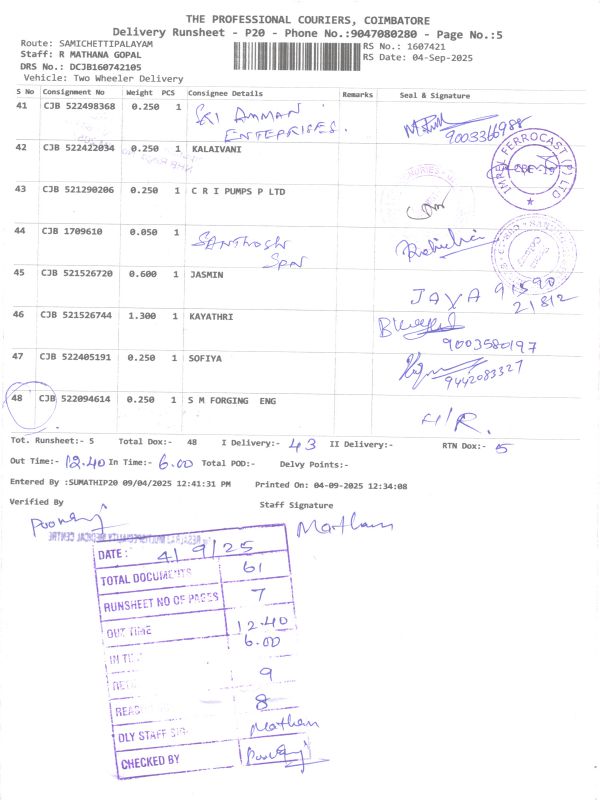 THE PROFESSIONAL COURIERS, COIMBATORE
Delivery Runsheet - P20 - Phone No.:9047080280 - Page No.:5
Route: SAMICHETTIPALAYAM RS No.: 1607421
Staff: R MATHANA GOPAL RS Date: 04-Sep-2025
DRS No.: DCJB160742105
Vehicle: Two Wheeler Delivery
S No Consignment No Weight PCS Consignee Details Remarks Seal & Signature
41 CJB 522498368 0.250 1 SRI AMMAN
ENTERPRISES.
9003366988
42 CJB 522422034 0.250 1 KALAIVANI
IMREL FERROCAST (P) LTD
43 CJB 521290206 0.250 1 C R I PUMPS P LTD
44 CJB 1709610 0.050 1 SANTHOSH
SPN
45 CJB 521526720 0.600 1 JASMIN JAYA 91590
21812
46 CJB 521526744 1.300 1 KAYATHRI
9003580197
47 CJB 522405191 0.250 1 SOFIYA
9442083327
48 CJB 522094614 0.250 1 S M FORGING ENG H/R.
Tot. Runsheet:- 5 Total Dox:- 48 I Delivery:- 43 II Delivery:- RTN Dox:- 5
Out Time:- 12.40 In Time:- 6.00 Total POD:- Delvy Points:-
Entered By :SUMATHIP20 09/04/2025 12:41:31 PM Printed On: 04-09-2025 12:34:08
Verified By Staff Signature
Mathan
DATE : 4/9/25
TOTAL DOCUMENTS 61
RUNSHEET NO OF PAGES 7
OUT TIME 12.40
IN TIME 6.00
9
8
DLY STAFF SIGN Mathan
CHECKED BY